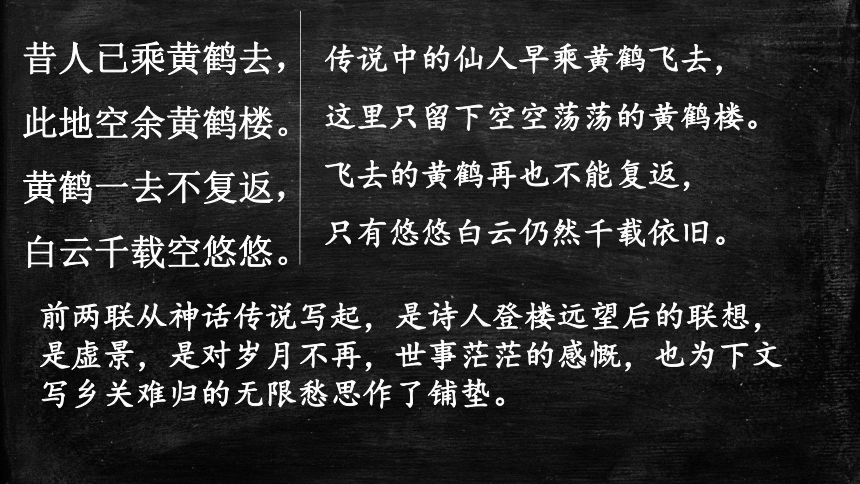 昔人已乘黄鹤去，
此地空余黄鹤楼。
黄鹤一去不复返，
白云千载空悠悠。
传说中的仙人早乘黄鹤飞去，
这里只留下空空荡荡的黄鹤楼。
飞去的黄鹤再也不能复返，
只有悠悠白云仍然千载依旧。
前两联从神话传说写起，是诗人登楼远望后的联想，
是虚景，是对岁月不再，世事茫茫的感慨，也为下文
写乡关难归的无限愁思作了铺垫。